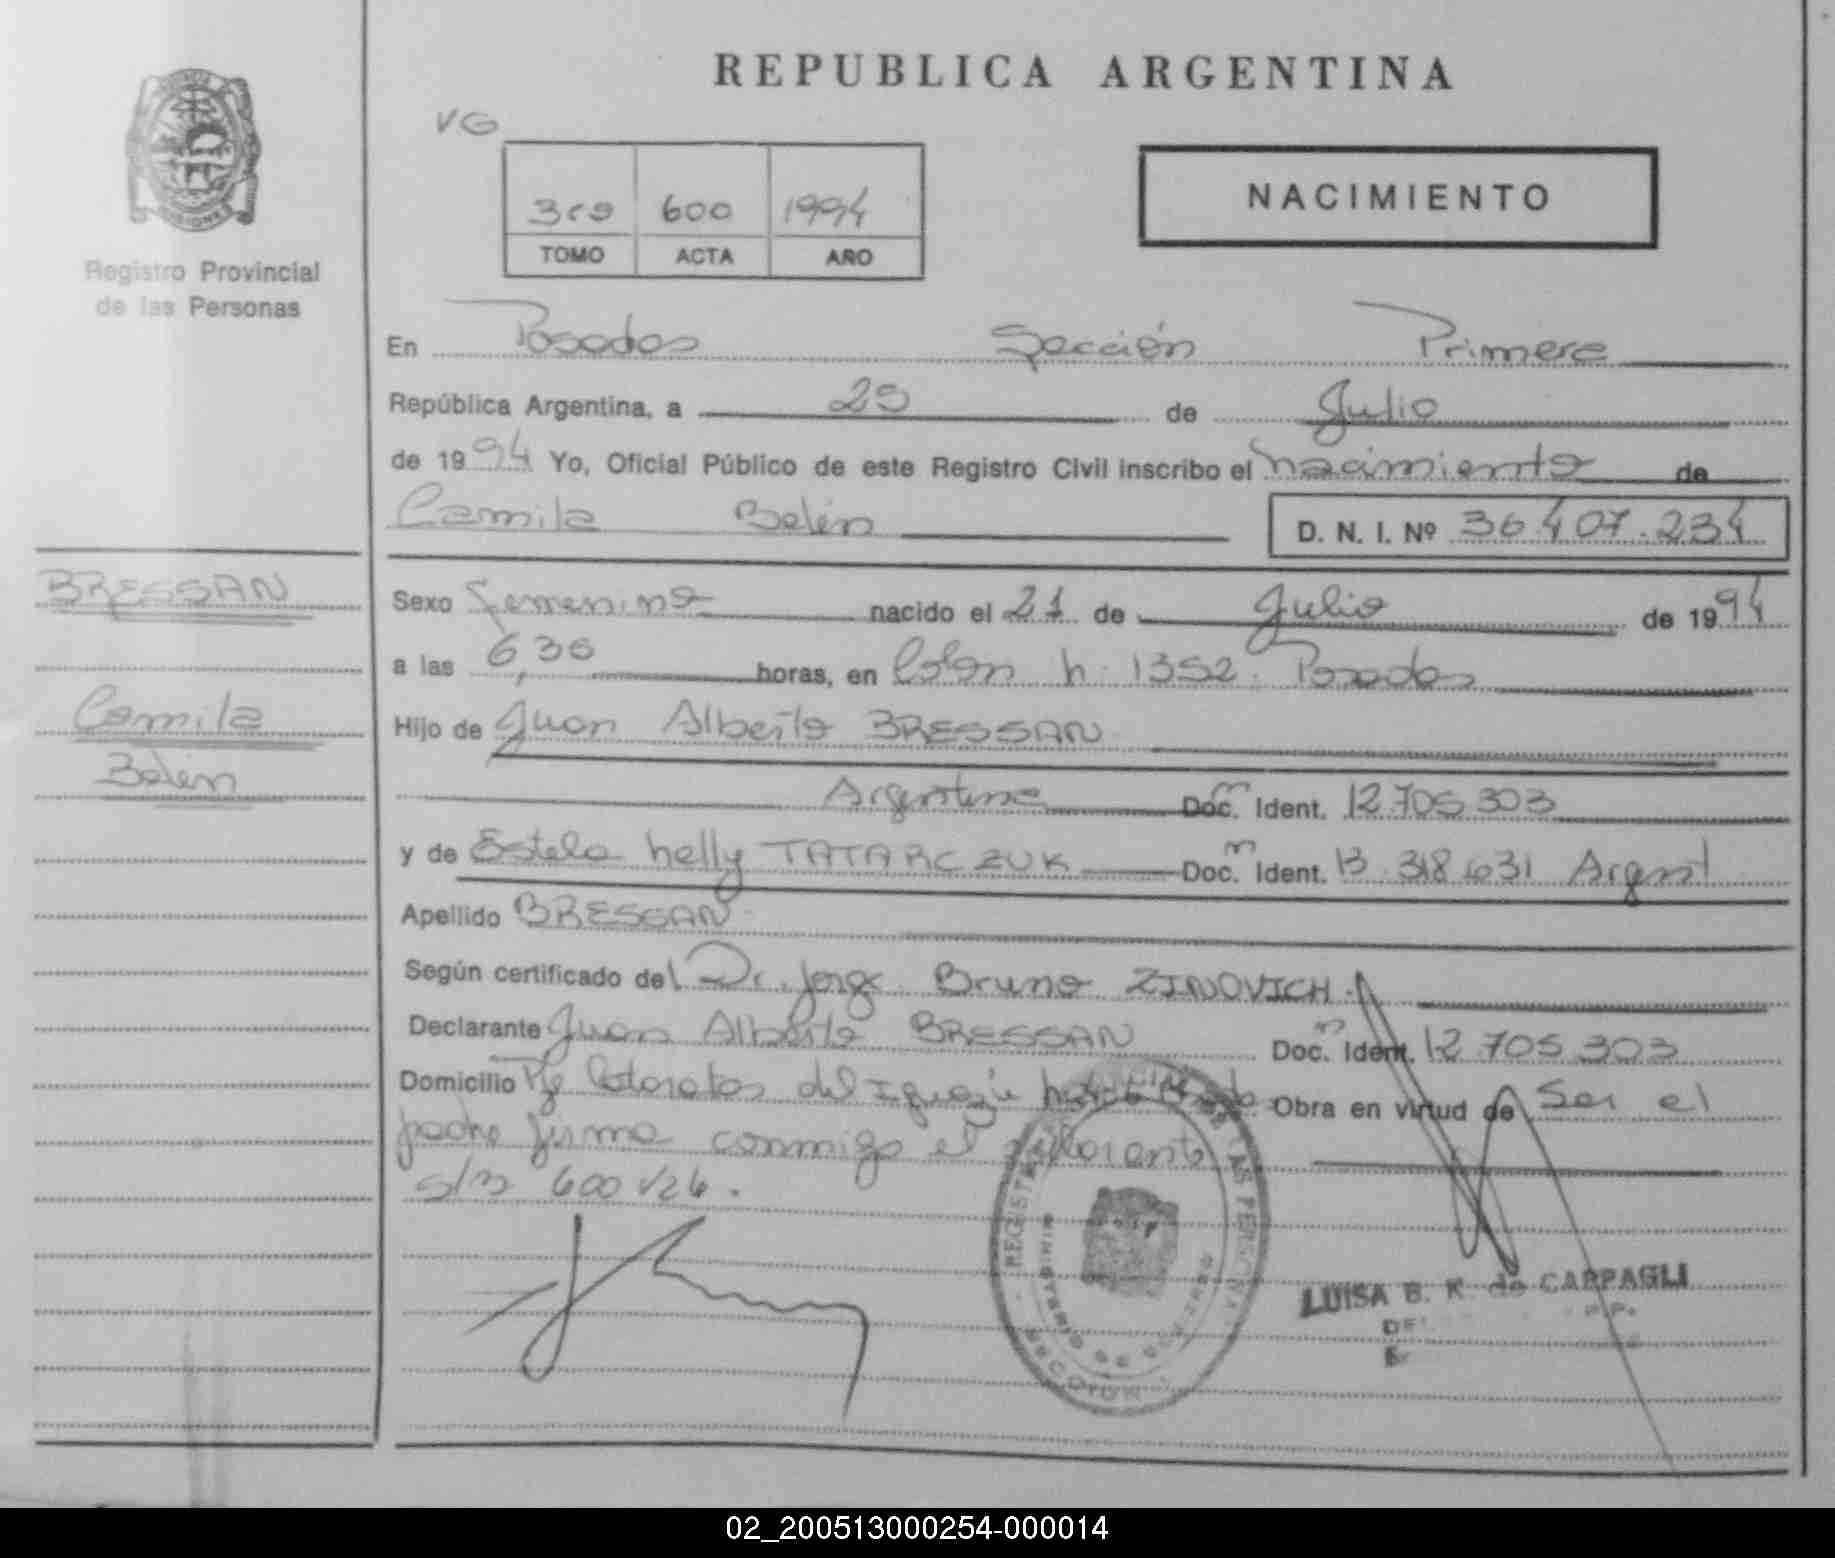 REPUBLICA ARGENTINA
VG
3ro 600 1994
TOMO ACTA AÑO
NACIMIENTO
MISIONES
Registro Provincial
de las Personas
En Posadas Sección Primera
República Argentina, a 25 de Julio
de 1994 Yo, Oficial Público de este Registro Civil inscribo el nacimiento de
Camila Belén D. N. I. Nº 36.407.234
BRESSAN
Camila
Belén
Sexo femenino nacido el 21 de Julio de 1994
a las 6,30 horas, en Colón n. 1352. Posadas
Hijo de Juan Alberto BRESSAN
Argentina Doc. Ident. 12.705.303
y de Estela Nelly TATARCZUK Doc. Ident. 13.318.631 Argent
Apellido BRESSAN
Según certificado del Dr. Jorge Bruno ZINOVICH.
Declarante Juan Alberto BRESSAN Doc. Ident. 12.705.303
Domicilio Cataratas del Iguazú Obra en virtud de Ser el
padre firma conmigo el
s/n 600 V26.
REGISTRO DE LAS PERSONAS
MINISTERIO DE GOBIERNO
SECCION
LUISA B. K. de CARPAGLI